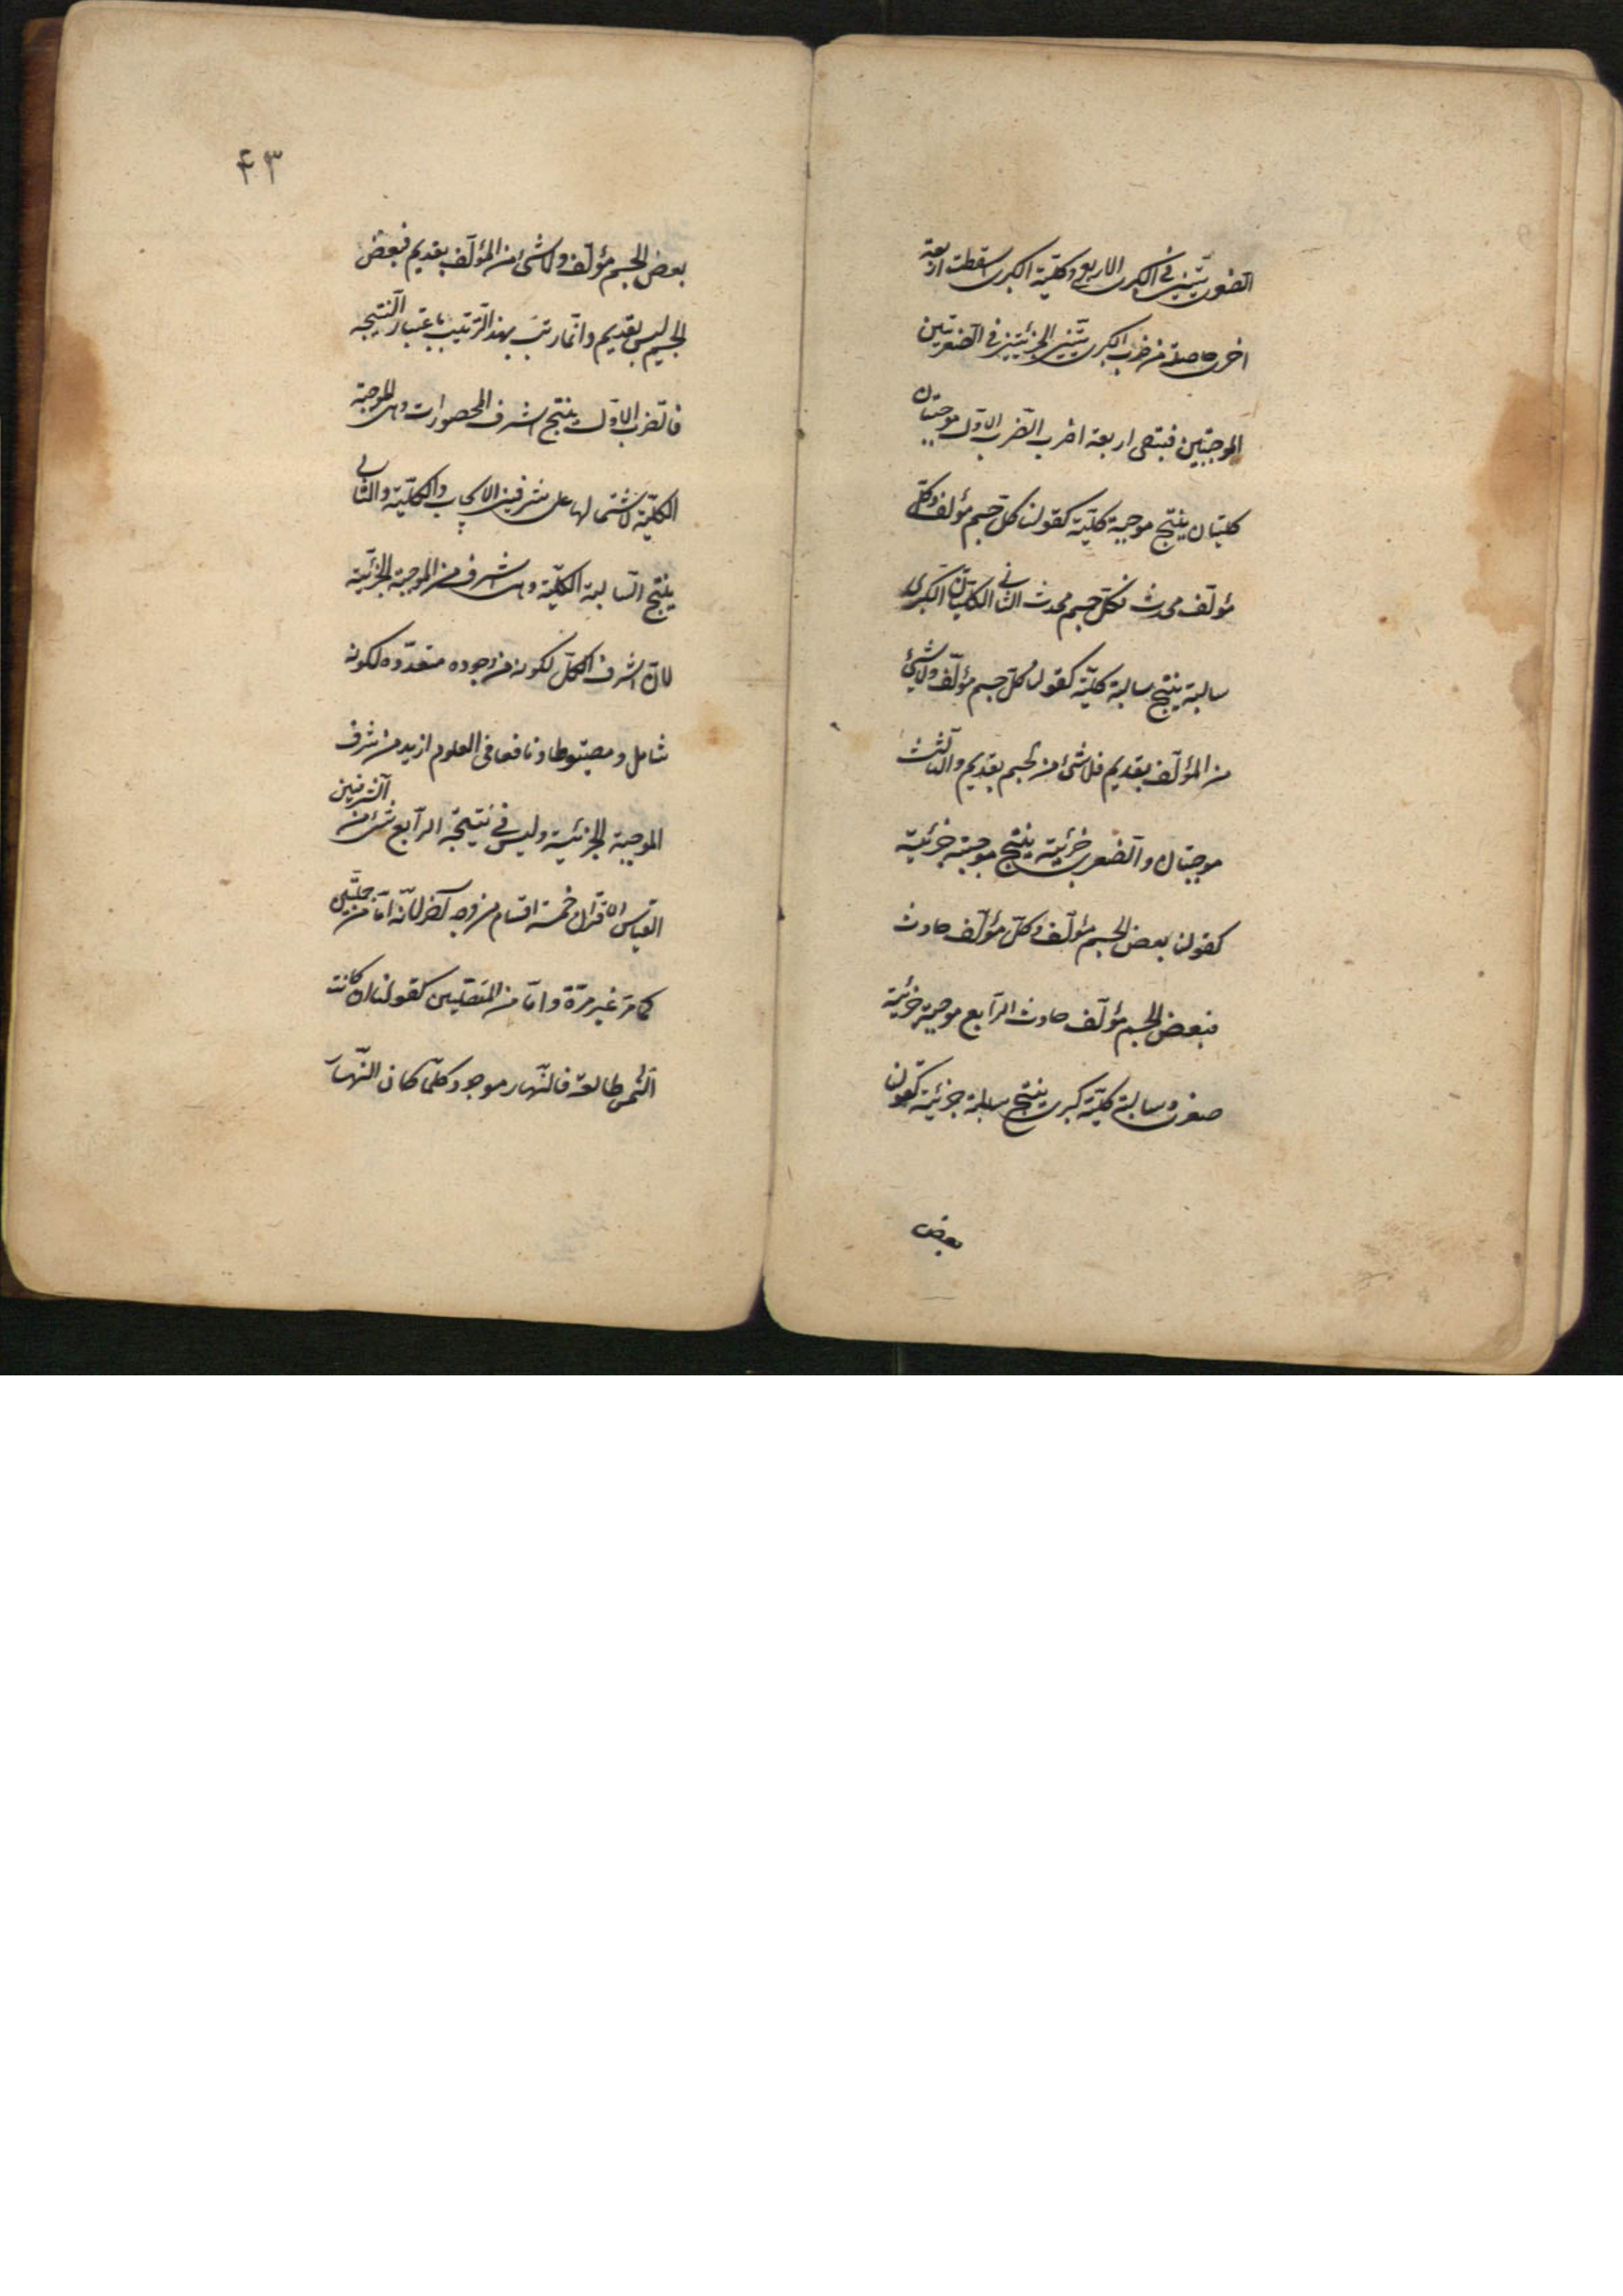 الصغريتين في الكبرى الاربع وكلية الكبرى اسقطت اربعة
اخرى حاصلة من ضرب الكبريتين الجزئيتين في الصغريتين
الموجبتين فبقى اربعة اضرب الضرب الاول موجبتان
كليتان ينتج موجبة كلية كقولنا كل جسم مؤلف وكل
مؤلف محدث فكل جسم محدث الثاني الكليتان الكبرى
سالبة ينتج سالبة كلية كقولنا كل جسم مؤلف ولا شئ
من المؤلف بقديم فلا شئ من الجسم بقديم والثالث
موجبتان والصغرى جزئية ينتج موجبة جزئية
كقولنا بعض الجسم مؤلف وكل مؤلف حادث
فبعض الجسم مؤلف حادث الرابع موجبة جزئية
صغرى وسالبة كلية كبرى ينتج سالبة جزئية كقولنا
بعض
٤٣
بعض الجسم مؤلف ولا شئ من المؤلف بقديم فبعض
الجسم ليس بقديم وانما رتب بهذا الترتيب باعتبار النتيجة
فالضرب الاول ينتج اشرف المحصورات وهى الموجبة
الكلية لاشتمالها على شرفين الايجاب والكلية والثاني
ينتج السالبة الكلية وهى اشرف من الموجبة الجزئية
لان اشرف الكل لكونه من وجوه متعددة لكونه
شامل ومضبوطا ونافعا في العلوم ازيد من شرف
الموجبة الجزئية وليس في نتيجة الرابع شئ من الشرفين
القياس الاقتراني خمسة اقسام من وجه آخر لانه اما من حمليتين
كما مر غير مرة واما من المتصلتين كقولنا ان كانت
الشمس طالعة فالنهار موجود كلما كان النهار